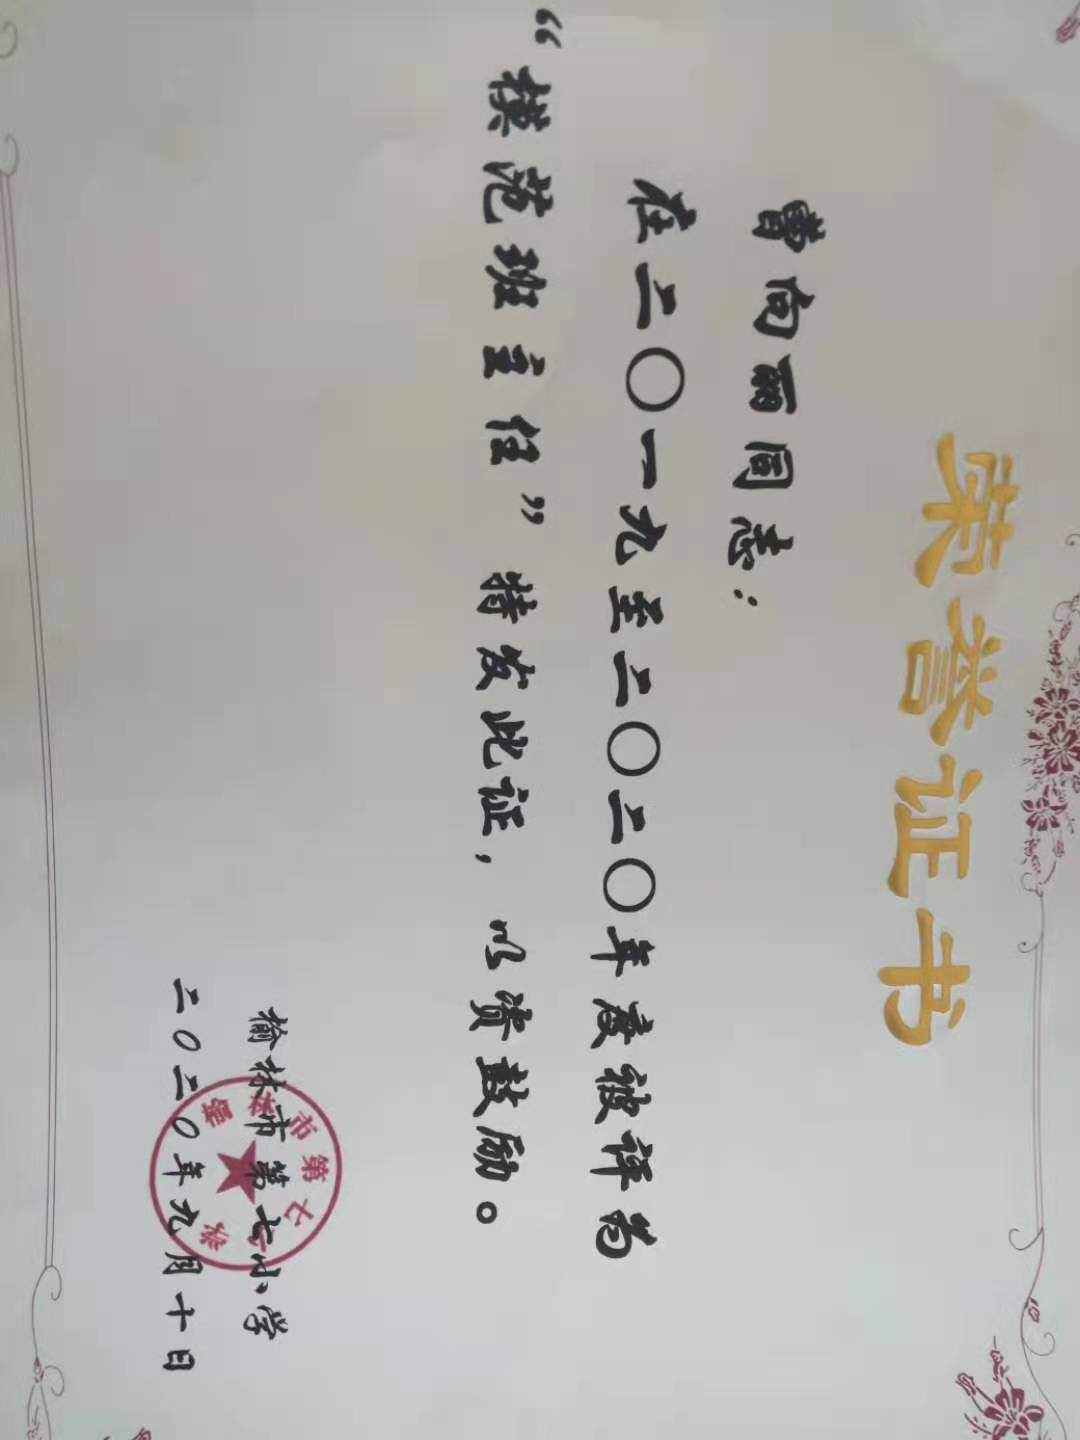 荣誉证书
曹向丽同志：
在二〇一九至二〇二〇年度被评为
“模范班主任”特发此证，以资鼓励。
榆林市第七小学
二〇二〇年九月十日